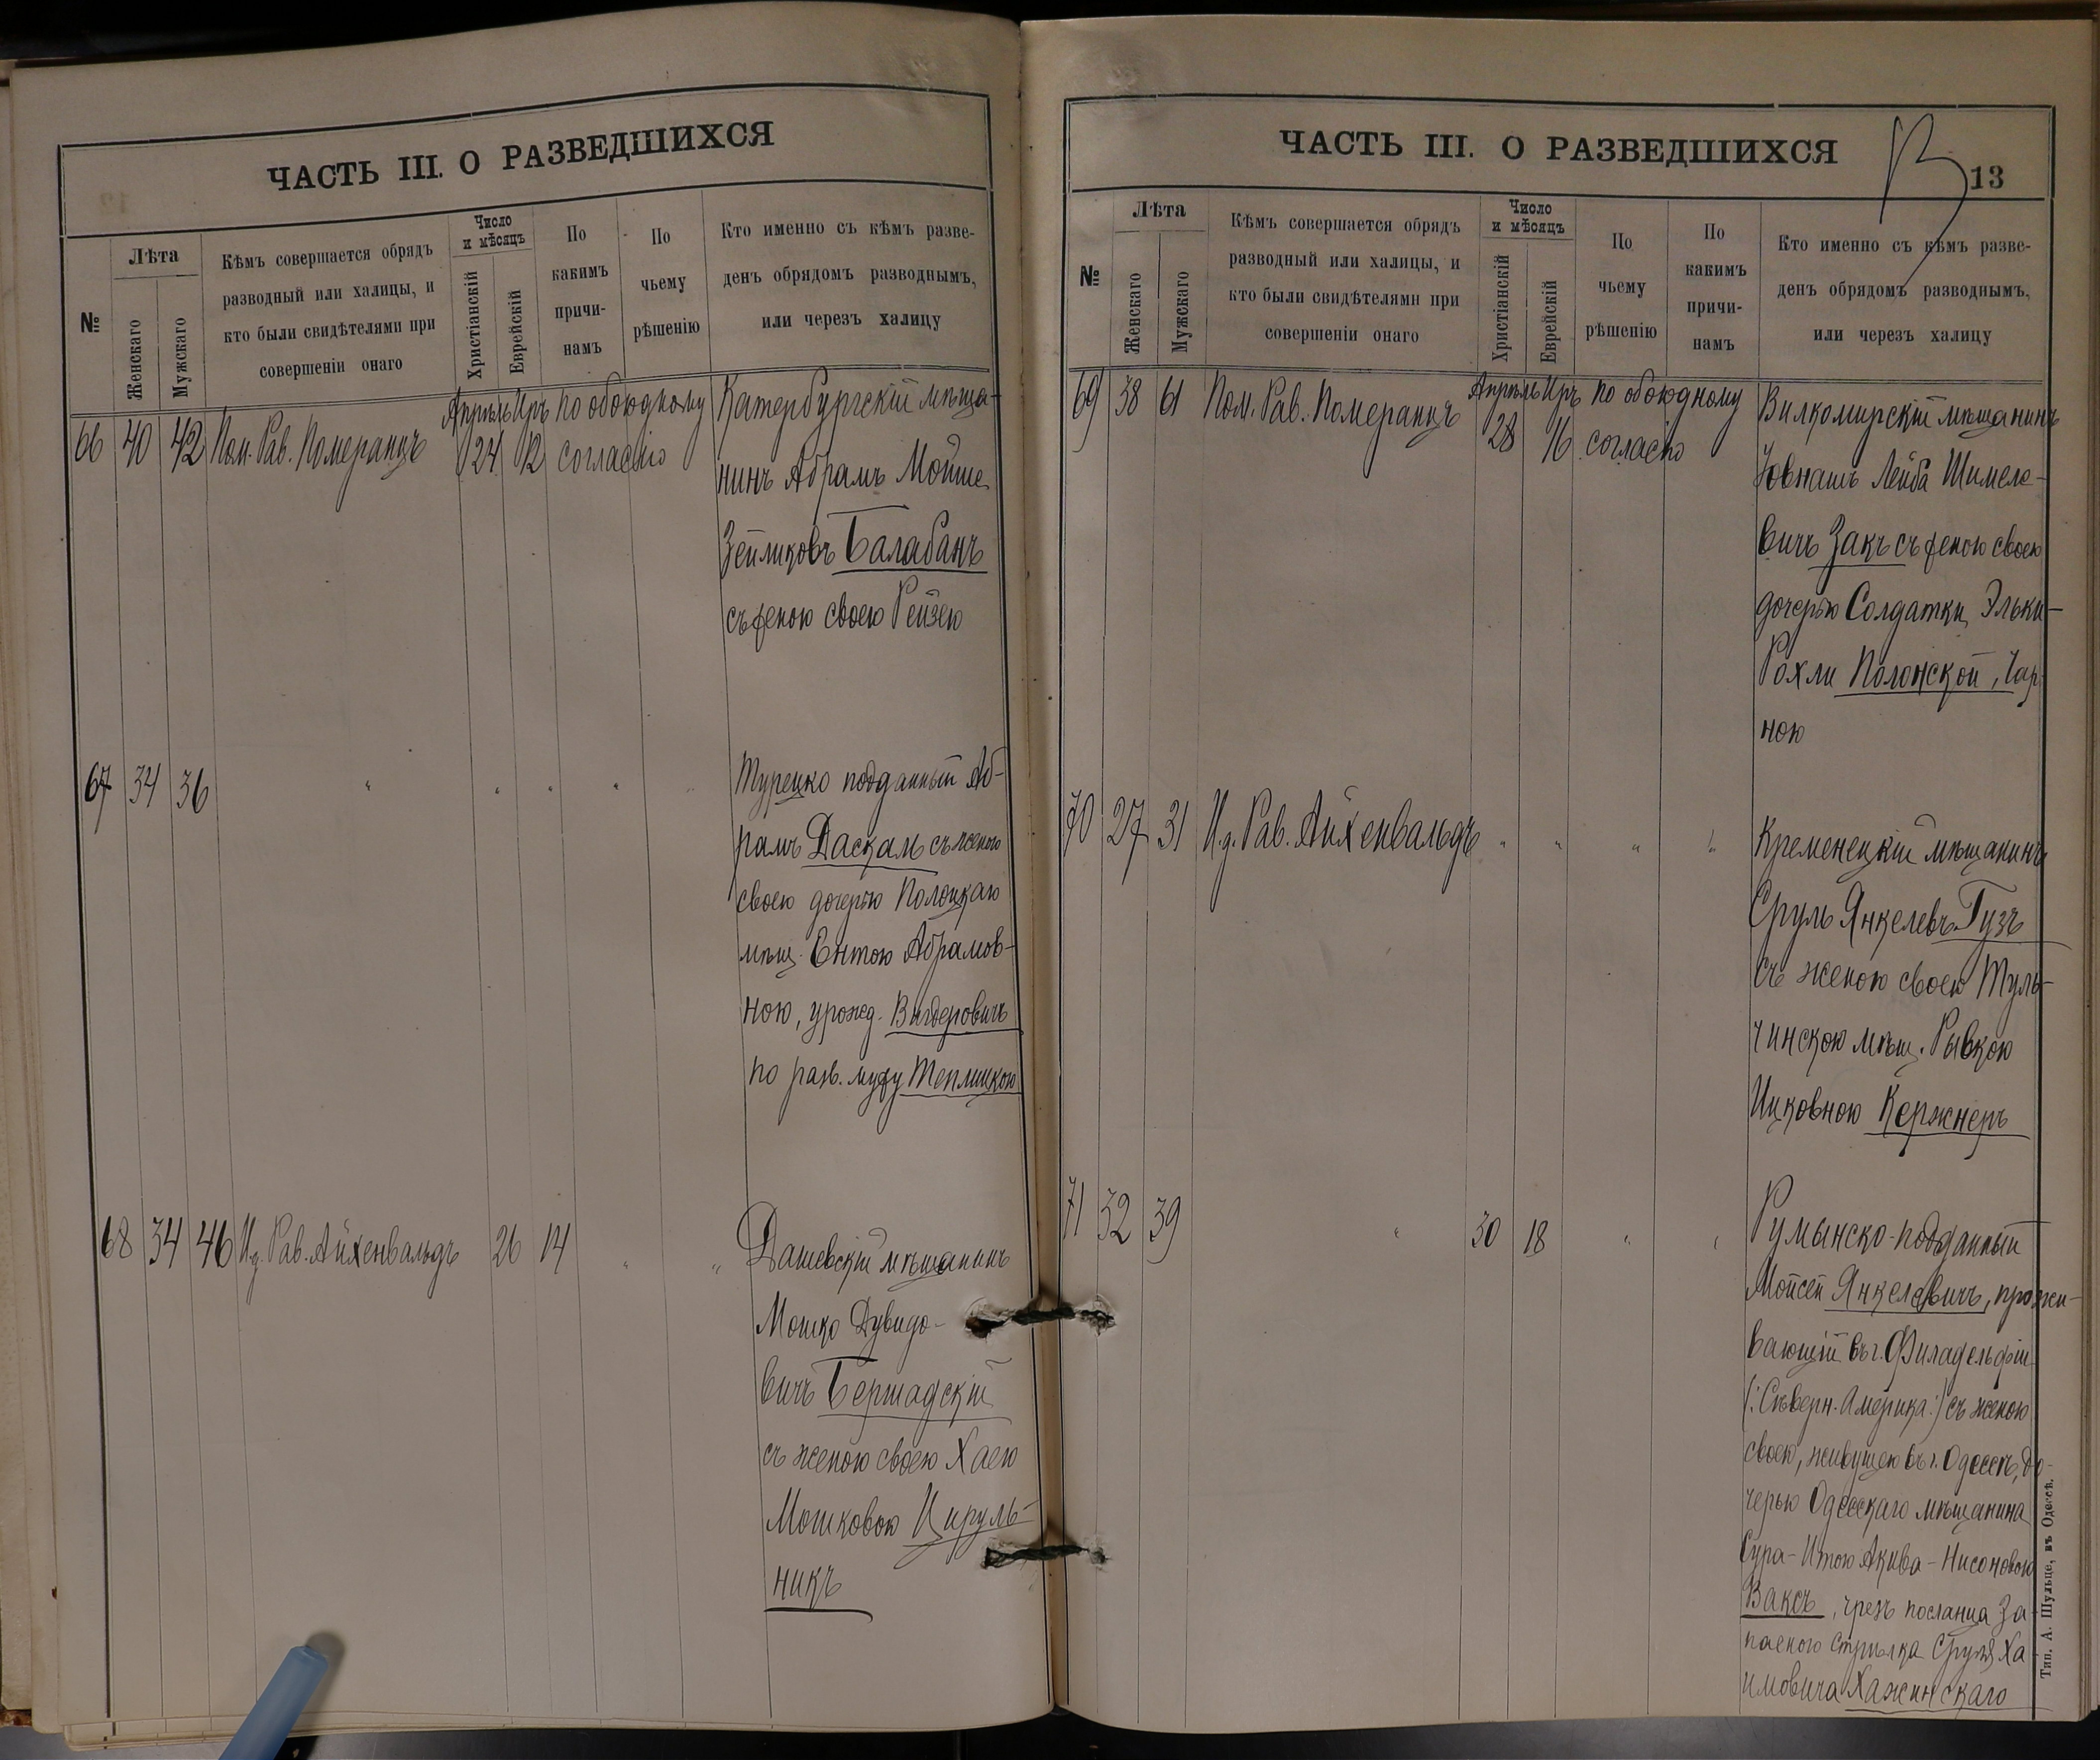 ЧАСТЬ III. О РАЗВЕДШИХСЯ
№
Лѣта
Женскаго
Мужскаго
Кѣмъ совершается обрядъ
разводный или халицы, и
кто были свидѣтелями при
совершеніи онаго
Число
и мѣсяцъ
Христіанскій
Еврейскій
По
какимъ
причи-
намъ
По
чьему
рѣшенію
Кто именно съ кѣмъ разве-
денъ обрядомъ разводнымъ,
или черезъ халицу
66 40 42 Пом. Рав. Померанцъ
Апрѣль Иръ
24 12
по обоюдному
согласію
Катербургскій мѣща-
нинъ Абрамъ Мойше
Зейликовъ Балабанъ
съ женою своею Рейзею
67 34 36 " " " " "
Турецко подданный Аб-
рамъ Даскалъ съ женою
своею дочерью Полоцкаго
мѣщ. Ентою Абрамов-
ною, урожд. Вигдеровичъ
по разв. мужу Теплицкою
68 34 46 И. д. Рав. Айхенвальдъ 26 14 " "
Дашевскій мѣщанинъ
Мошко Дувидо-
вичъ Бершадскій
съ женою своею Хаею
Мошковою Цируль-
никъ
ЧАСТЬ III. О РАЗВЕДШИХСЯ
13
№
Лѣта
Женскаго
Мужскаго
Кѣмъ совершается обрядъ
разводный или халицы, и
кто были свидѣтелями при
совершеніи онаго
Число
и мѣсяцъ
Христіанскій
Еврейскій
По
чьему
рѣшенію
По
какимъ
причи-
намъ
Кто именно съ кѣмъ разве-
денъ обрядомъ разводнымъ,
или черезъ халицу
69 38 61 Пом. Рав. Померанцъ
Апрѣль Иръ
28 16
по обоюдному
согласію
Вилкомирскій мѣщанинъ
Лейба Шимеле-
вичъ Закъ съ женою своею
дочерью Солдатки Эльки-
Рохли Полонской, Чар-
ною
70 27 31 И. д. Рав. Айхенвальдъ " " " "
Кременецкій мѣщанинъ
Сруль Янкелевъ Гузъ
съ женою своею Туль-
чинскою мѣщ. Рывкою
Ицковною Кержнеръ
71 32 39 " 30 18 " "
Румынско-подданный
Мойсей Янкелевичъ, прожи-
вающій въ г. Филадельфіи
(: Сѣверн. Америка :) съ женою
своею, живущею въ г. Одессѣ, до-
черью Одесскаго мѣщанина
Сура-Итою Акива-Нисоновою
Ваксъ, чрезъ посланца за-
паснаго стрѣлка Сруля Ха-
имовича Хажинскаго
Тип. А. Шульце, въ Одессѣ.